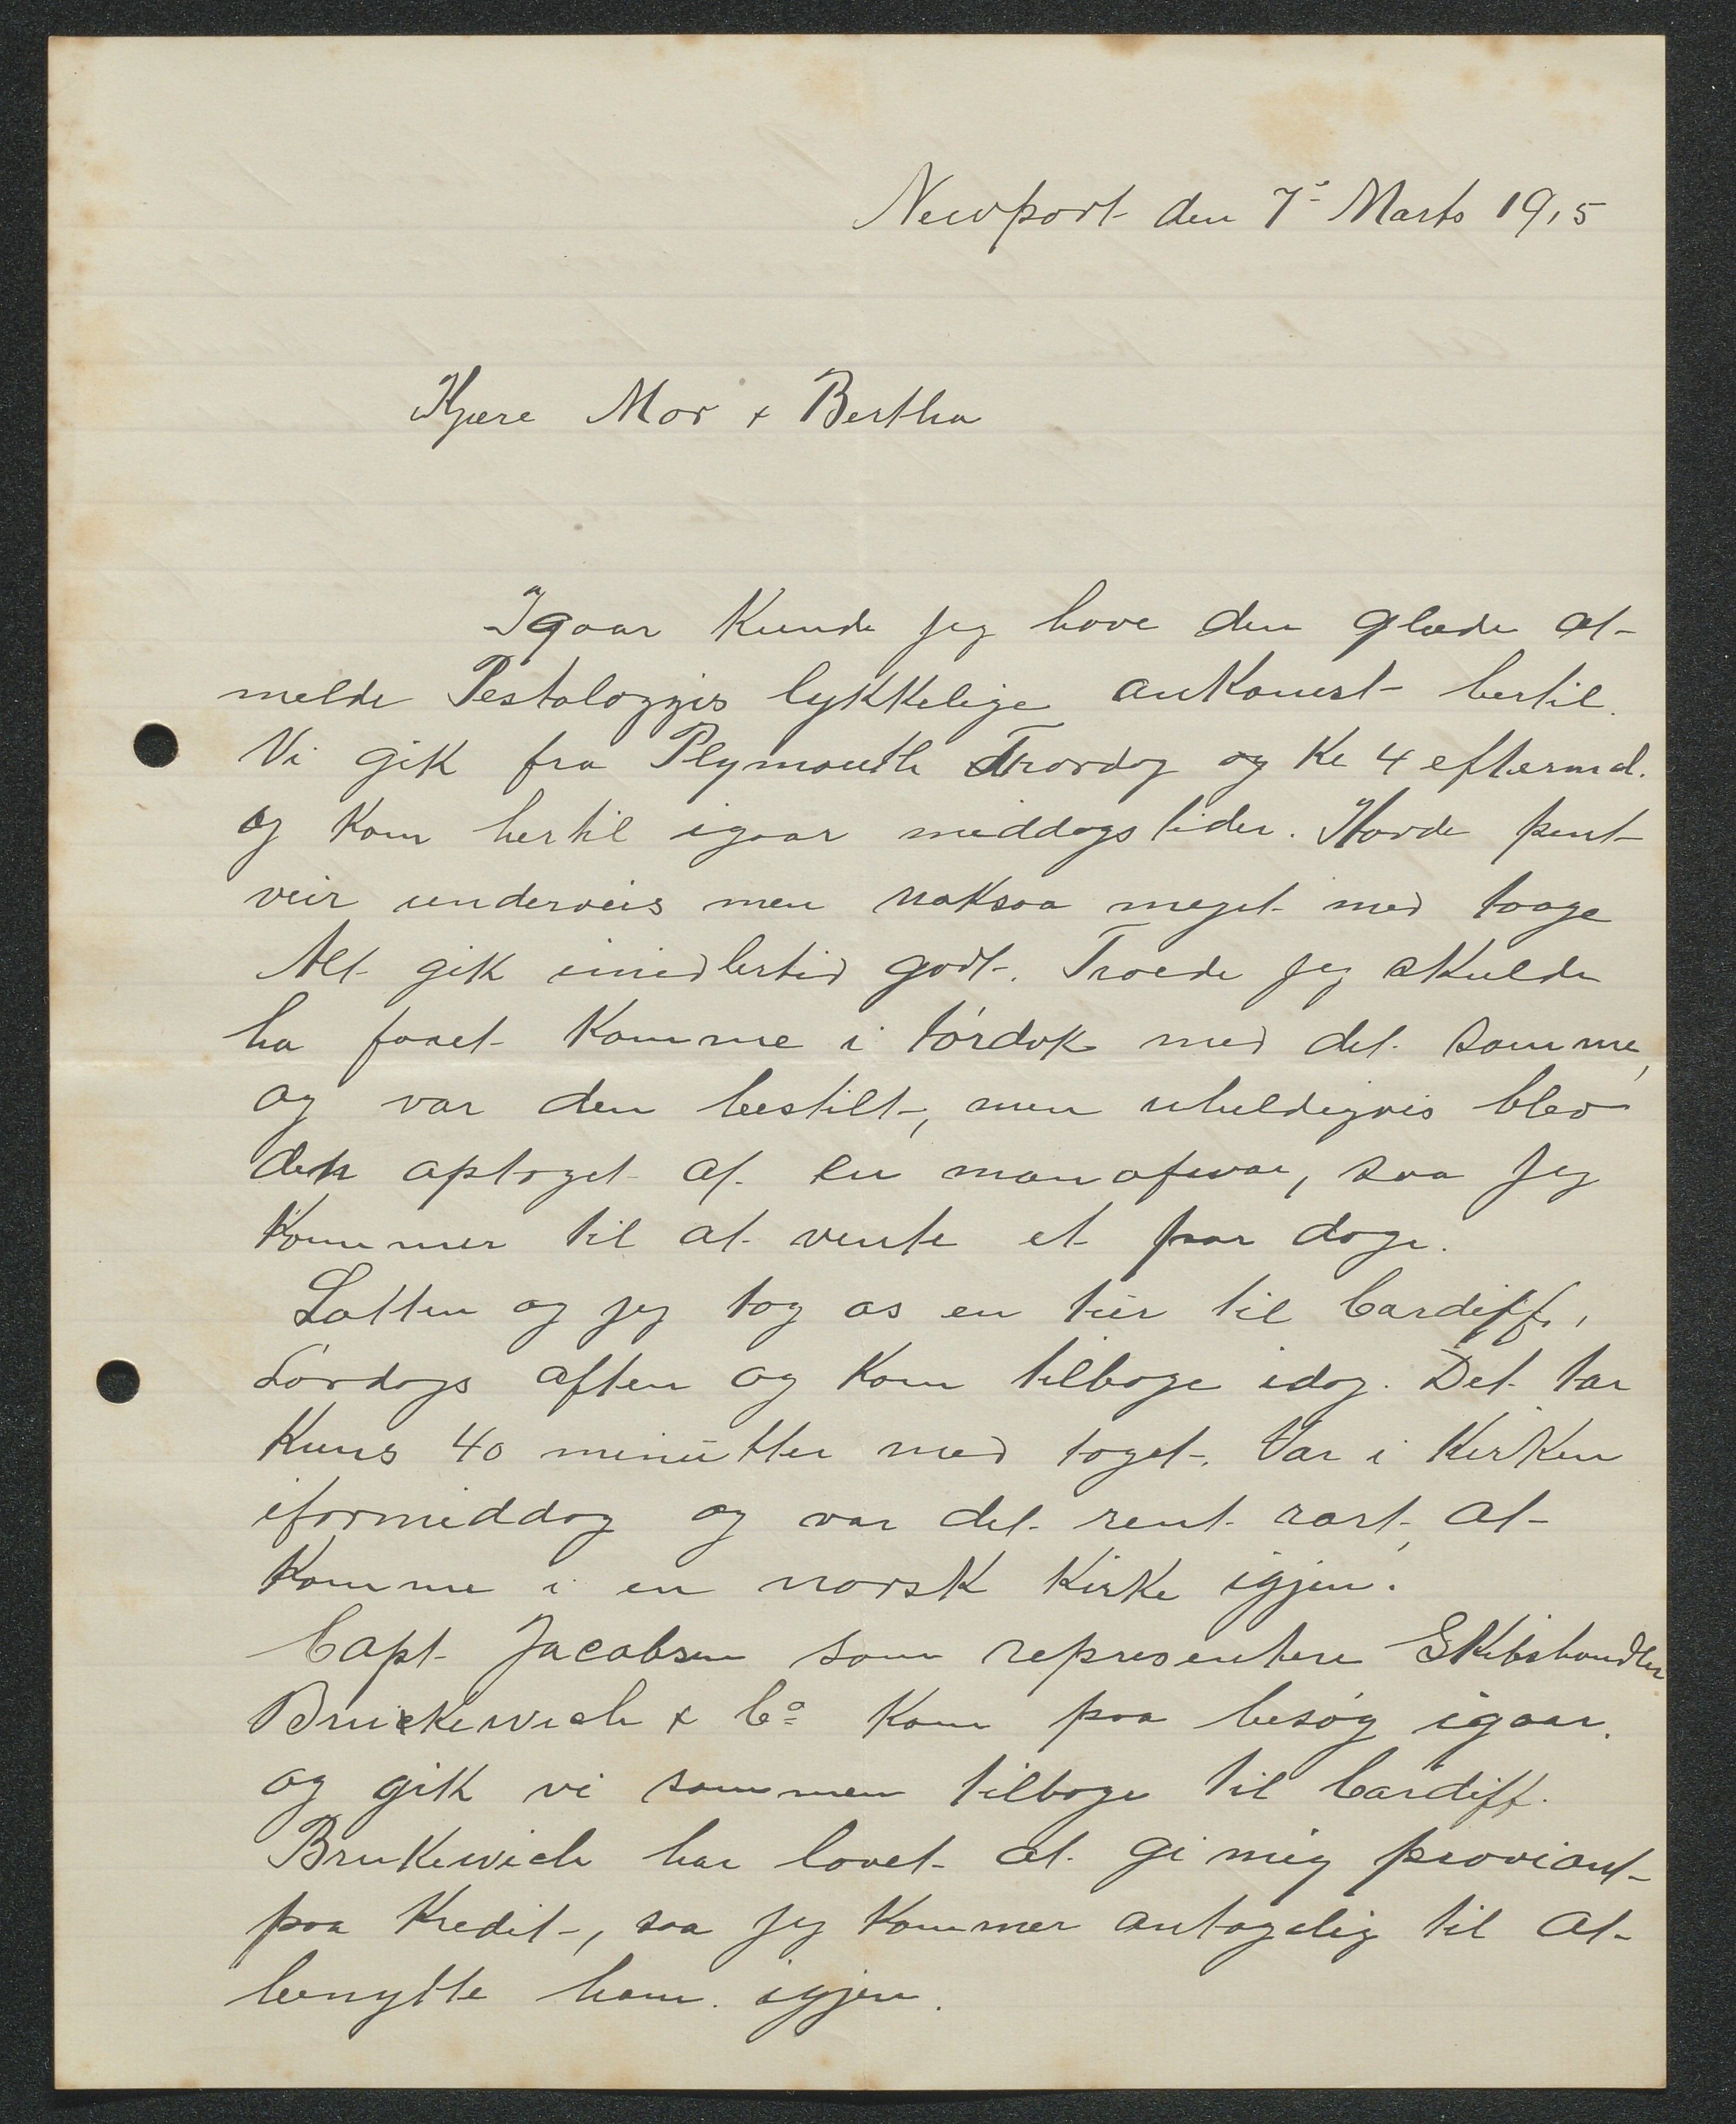 Newport den 7de Marts 1915
Kjære Mor & Bertha
Igaar kunde jeg have den glæde at
melde Pestalozzis lykkelige ankomst hertil.
Vi gik fra Plymouth Torsdag og Kl 4 eftermd.
og kom hertil igaar middagstider. Havde pent
veir underveis men noksaa meget med taage
Alt gik imidlertid godt. Troede jeg skulde
ha faaet komme i tørdok med det samme,
og var den bestilt, men uheldigvis blev
den optaget af en manofwar, saa jeg
kommer til at vente et par dage.
Lotten og jeg tog os en tur til Cardiff,
Lørdags aften og kom tilbage idag. Det tar
kuns 40 minutter med toget. Var i kirken
iformiddag og var det rent rart, at
komme i en norsk kirke igjen.
Capt Jacobsen som representere Skibshandler
Bruckewich & Co kom paa besøg igaar.
og gik vi sammen tilbage til Cardiff.
Brukewich har lovet at gi mig proviant
paa kredit, saa jeg kommer antagelig til at
benytte ham igjen.